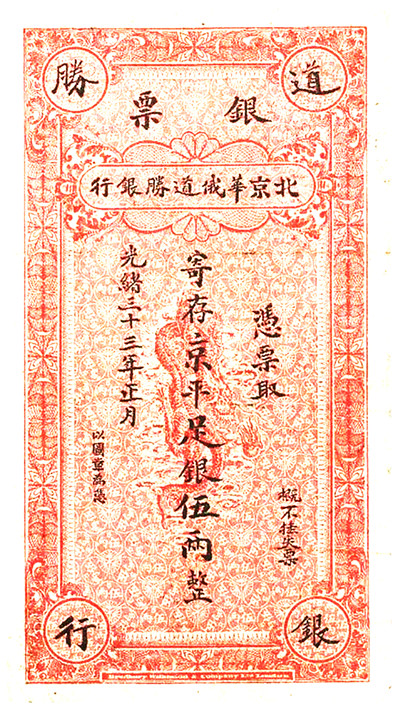 道勝
銀票
北京華俄道勝銀行
憑票取
概不挂失票
寄存京平足銀伍兩整
光緒三十三年正月
以圖章為憑
銀行
Bradbury Wilkinson & Company Ltd London.